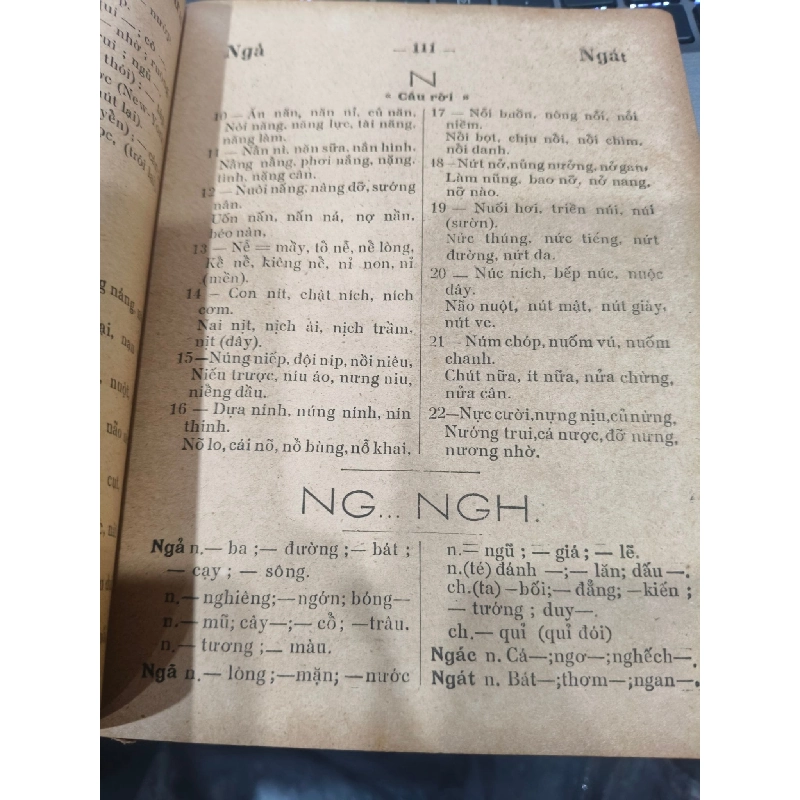 Ngả
— 111 —
Ngát
N
" Câu rời "
10 — Ăn năn, năn nỉ, củ năn,
Nói năng, năng lực, tài năng,
năng làm.
11 — Nằn nì, năn sữa, nắn hình.
Nằng nằng, phơi nắng, nặng,
tình, nặng cân.
12 — Nuôi nấng, nâng đỡ, sướng
nân.
Uốn nắn, nấn ná, nợ nần,
béo nần.
13 — Nể = mầy, tổ nể, nề lòng,
Kề nề, kiêng nề, nỉ non, nỉ
(mền).
14 — Con nít, chật ních, ních
cơm.
Nai nịt, nịch ái, nịch trầm,
nịt (dây).
15—Núng niếp, đội nịp, nồi niêu,
Niễu trược, níu áo, nưng niu,
niềng đầu.
16 — Dựa ninh, núng nính, nin
thinh.
Nõ lo, cái nõ, nổ bùng, nổ khai.
17 — Nỗi buồn, nông nỗi, nỗi
niềm.
Nồi bọt, chịu nồi, nồi chìm,
nồi danh.
18 —Nứt nở, nũng nướng, nở gan,
Làm nũng, bao nỡ, nở nang,
nỡ nào.
19 — Nuối hơi, triền núi, núi
(sườn).
Nức thúng, nức tiếng, nứt
đường, nứt da.
20 — Núc ních, bếp núc, nuộc
dây.
Não nuột, nút mật, nút giày,
nút ve.
21 — Núm chóp, nuốm vú, nuốm
chanh.
Chút nữa, ít nữa, nửa chừng,
nửa cân.
22—Nực cười, nựng nịu, củ nừng,
Nướng trui, cá nược, đỡ nưng,
nương nhờ.
NG... NGH.
Ngả n.— ba ;— đường ;— bát ;
— cạy ; — sông.
n.— nghiêng;—ngớn; bóng—
n.— mũ; cây—;— cỗ; —trâu.
n.— tương ;— màu.
Ngã n.— lòng ;—mặn; —nước
n.— ngũ ; — giá ; — lẽ.
n.(té) đánh —;— lăn; dấu —.
ch.(ta) —bối;— đẳng; —kiến ;
— tướng ; duy—.
ch.— quỉ (quỉ đói)
Ngác n. Cá—;ngơ—;nghếch—.
Ngát n. Bát—;thơm—;ngan—.